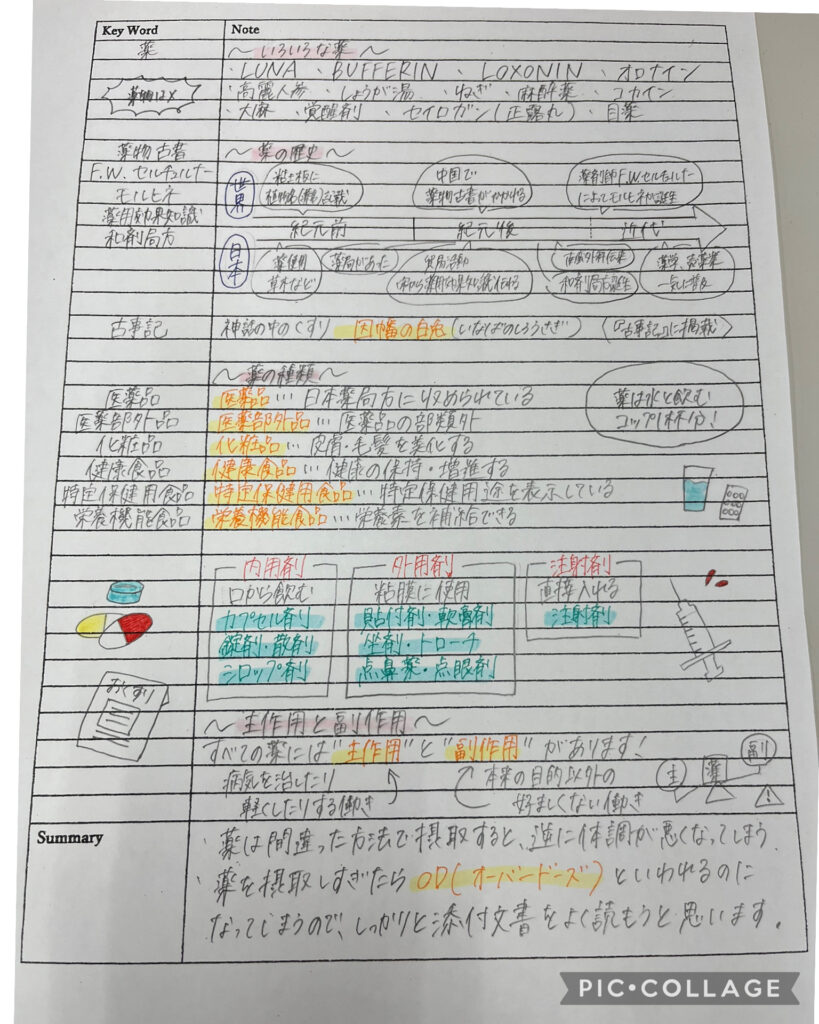 Key Word
Note
薬
～いろいろな薬～
・LUNA ・BUFFERIN ・LOXONIN ・オロナイン
薬物はX
・高麗人参 ・しょうが湯 ・ねぎ ・麻酔薬 ・コカイン
・大麻 ・覚醒剤 ・セイロガン(正露丸) ・目薬
薬物古書
～薬の歴史～
F.W.セルチュルナー
モルヒネ
薬用効果知識
和剤局方
世界
粘土板に
中国で
薬物古書がかかれる
薬剤師F.W.セルチュルナー
によってモルヒネが誕生
紀元前
紀元後
近代
日本
薬使用
草木など
薬局があった
貿易活動
和剤局方誕生
薬学、製薬業
一気に普及
古事記
神話の中のくすり 因幡の白兎(いなばのしろうさぎ) (『古事記』に掲載)
～薬の種類～
医薬品
医薬品…日本薬局方に収められている
薬は水と飲む
コップ1杯分!
医薬部外品
医薬部外品…医薬品の部類外
化粧品
化粧品…皮膚・毛髪を美化する
健康食品
健康食品…健康の保持・増進する
特定保健用食品
特定保健用食品…特定保健用途を表示している
栄養機能食品
栄養機能食品…栄養素を補給できる
内用剤
外用剤
注射剤
口から飲む
粘膜に使用
直接入れる
カプセル剤
貼付剤・軟膏剤
注射剤
錠剤・散剤
坐剤・トローチ
シロップ剤
点鼻薬・点眼剤
おくすり
～主作用と副作用～
すべての薬には"主作用"と"副作用"があります!
病気を治したり
軽くしたりする働き
本来の目的以外の
好ましくない働き
主
薬
副
Summary
・薬は間違った方法で摂取すると、逆に体調が悪くなってしまう
・薬を摂取しすぎたらOD(オーバードーズ)といわれるのに
なってしまうので、しっかりと添付文書をよく読もうと思います。
PIC•COLLAGE